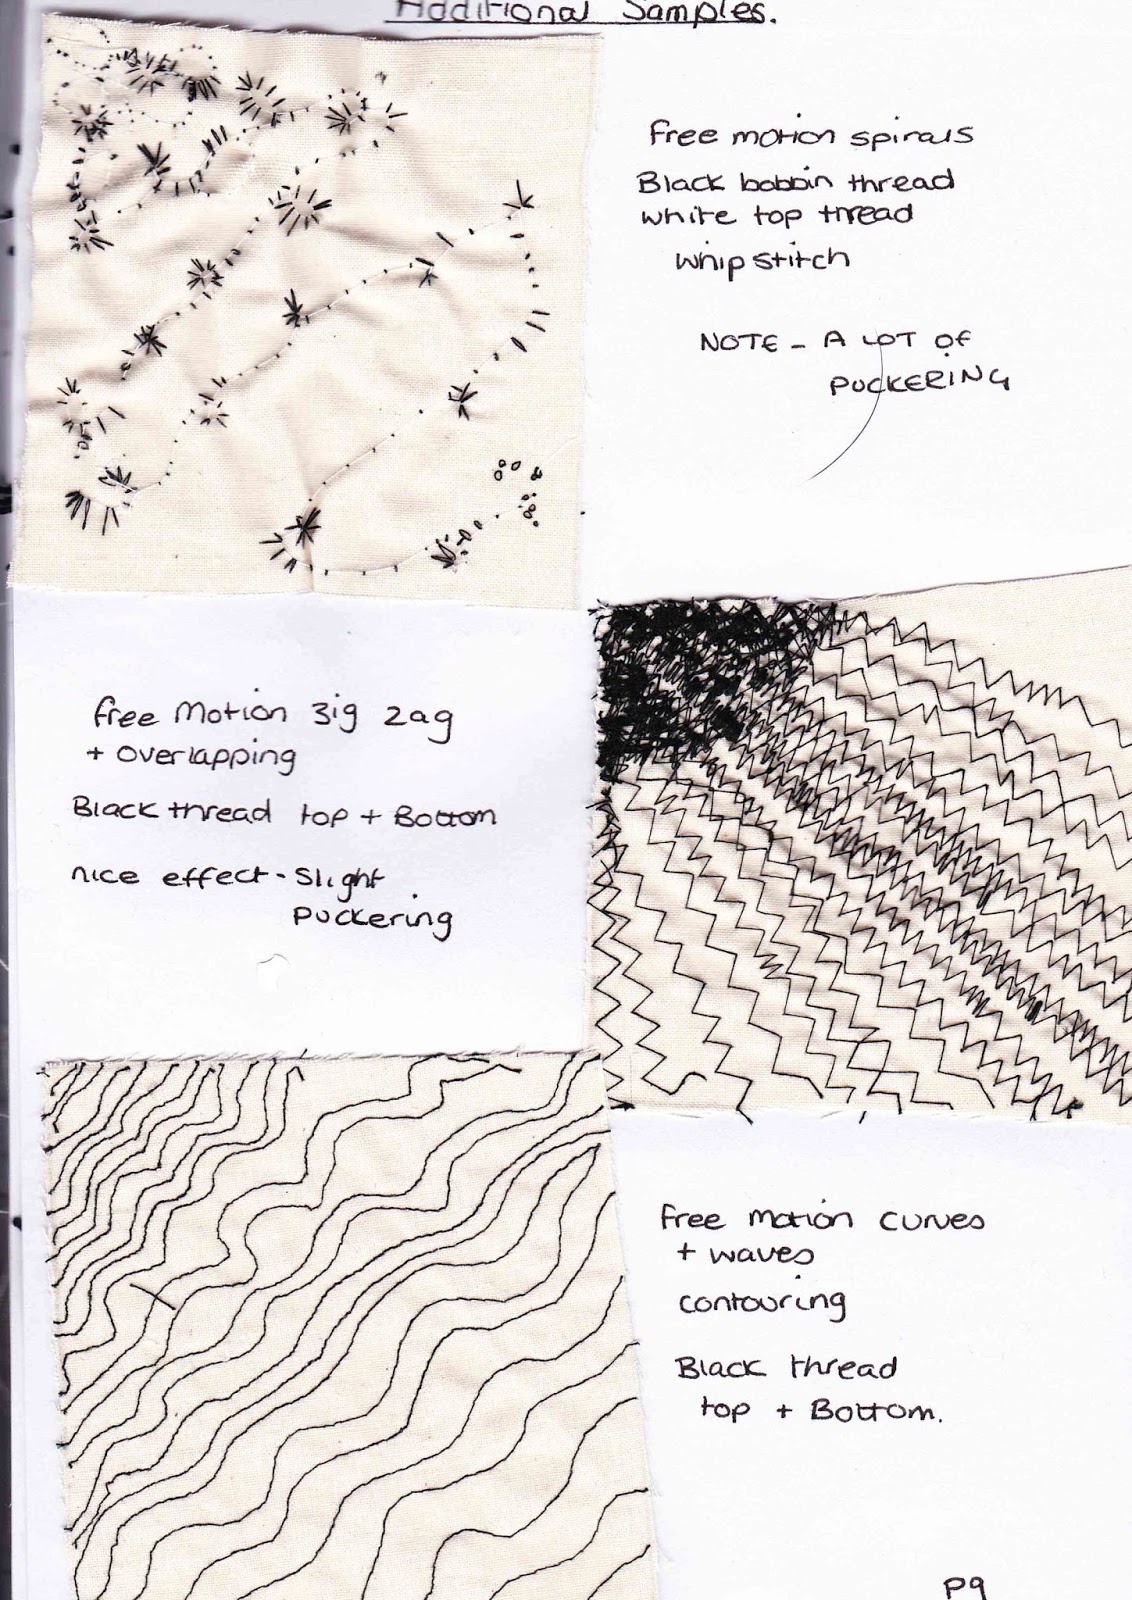 Additional Samples.
Free motion spirals
Black bobbin thread
white top thread
whip stitch
NOTE - A LOT OF
PUCKERING
Free Motion Zig Zag
+ overlapping
Black thread top + Bottom
nice effect - Slight
puckering
Free motion curves
+ waves
contouring
Black thread
top + Bottom.
P9